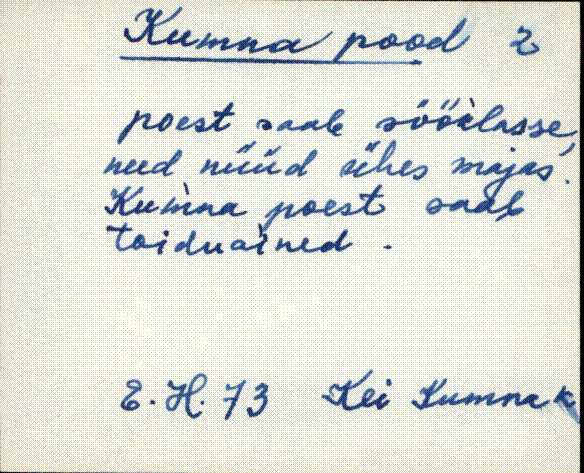 Kumna pood 2
poest saab sööklasse,
need nüüd ühes majas.
Kumna poest saab
toiduained.
E.H. 73 Kei Kumna k